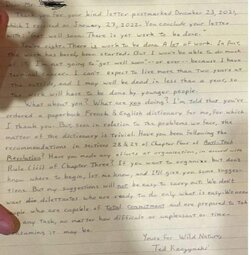 Dear Mr.
Thank you for your kind letter postmarked December 23, 2021,
received on January 27, 2022. You conclude your letter
with "Get well soon. There is yet work to be done."
You're right. There is work to be done. A lot of work. In fact
the work has hardly been started. But I won't be able to do much
not going to get well soon--or ever--because I have
I can't expect to live more than two years at
the outside, and I may well be dead in less than a year, so
will have to be done by younger people.
What about you? What are you doing? I'm told that you've
ordered a paperback French & English dictionary for me, for which
I thank you. But in relation to the problems we face, the
matter of the dictionary is trivial. Have you been following the
recommendations in Sections 28 & 29 of Chapter Four of Anti-Tech
Revolution? Have you made any efforts at organization in line with
Rule (iii) of Chapter Three? If you want to organize but don't
know where to begin, let me know, and I'll give you some sugges-
tions. But my suggestions will not be easy to carry out. We don't
want dilettantes who are ready to do only what is easy. We want
people who are capable of total commitment and are prepared to take
any task, no matter how difficult or unpleasant or time-
consuming it may be.
Yours for Wild Nature,
Ted Kaczynski